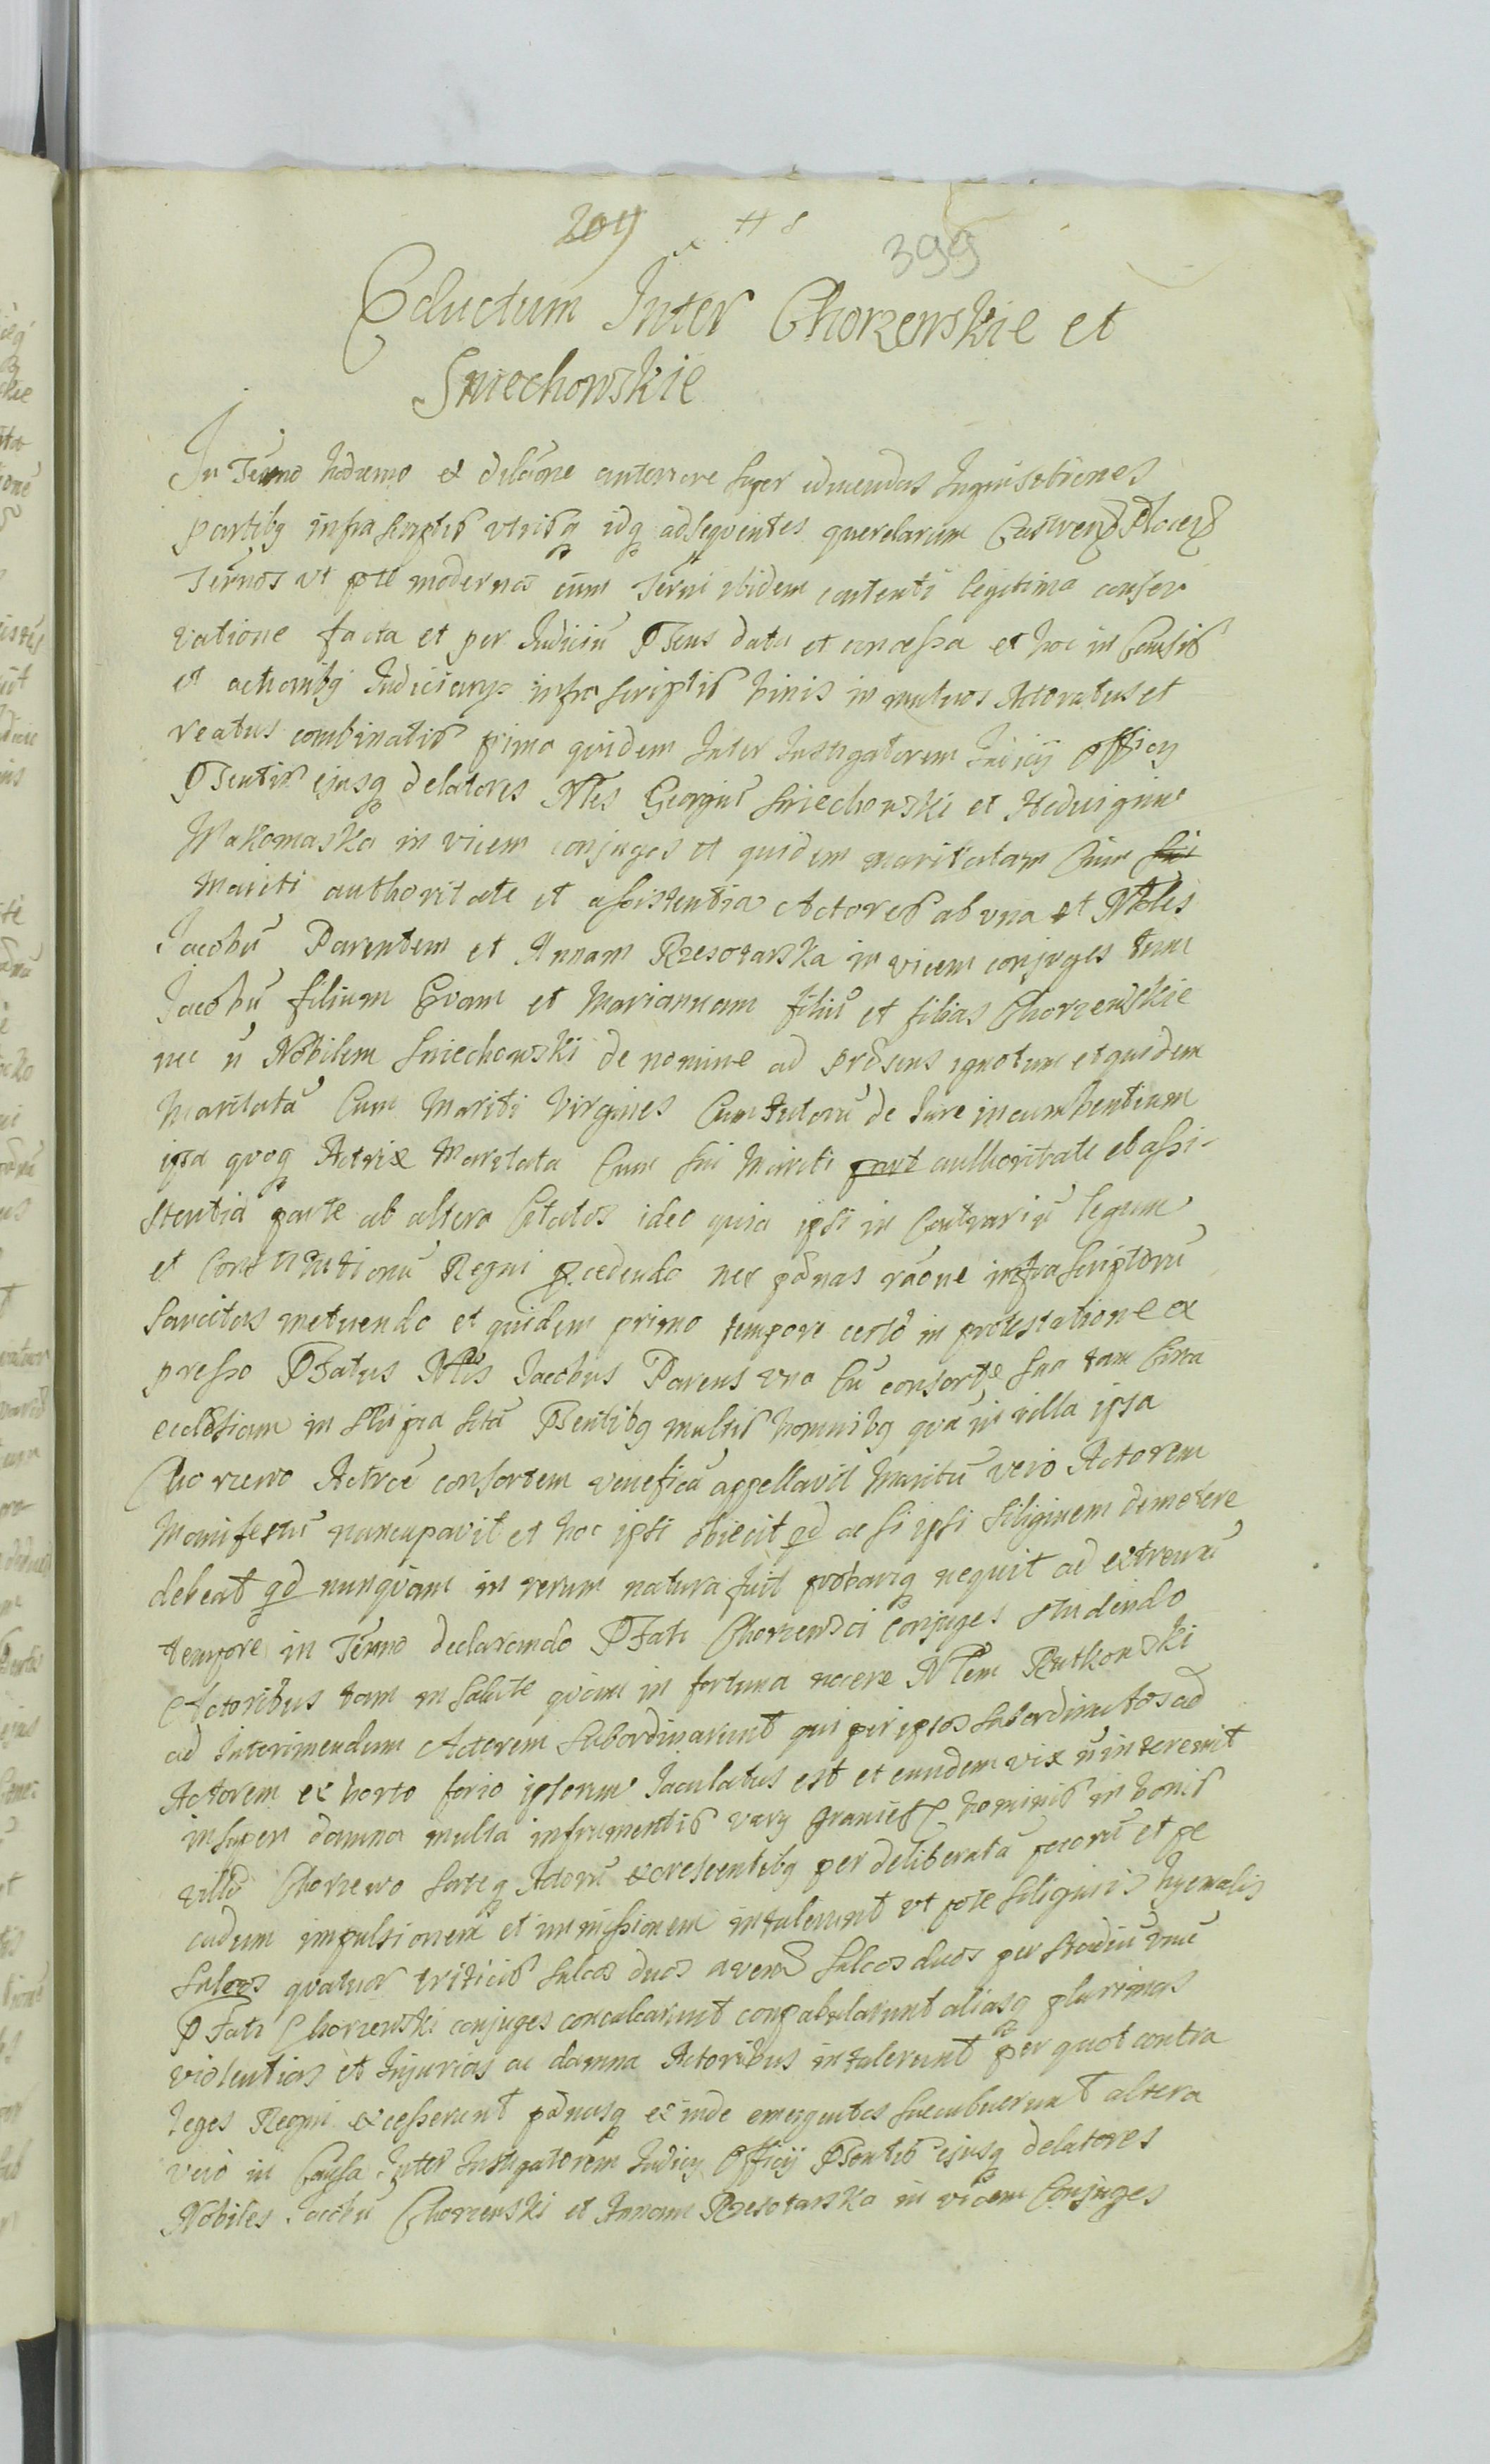 209 H 8
399
Eductum Inter Chorzewskie et
Sniechowskie
In Termo hodierno ex dilaone anteriore super educendas Inquisitiones
partibq infra scriptis utrisq idq adsequentes querelarum Castren Plocen
Ternos ut pote modernos cum Termi ibidem contenti legitima conser
vatione facta et per Judiciũ Pns data et concessa et hoc in Causis
et actionibq Judiciarys infrascriptis binis in mutuos Actoratus et
reatus combinatis primo quidem Inter Instigatorem Judicij Officy
Psentis ejusq delatores Nles Georgiũ Sniechowski et Hedvigim
Makomaska in vicem conjuges et quidem maritatam Cum sui
Mariti authoritate et assistentia Actores ab una et Nobles
Jacobũ Parentem et Annam Rzesotarska in vicem conjuges tum
Jacobũ filium Evam et Mariannam filiũ et filias Chorzewskie
nec ñ Nobilem Sniechowski de nomine ad prasens ignotum et quidem
Maritatã Cum Mariti Virgines Cum tutorũ de Jure incumbentium
ipsa quoq Actrix Maritata Cum sui Mariti part authoritate et assi-
stentia parte ab altera Citatos ideo quia ipsi in Contrariũ legum
et Constitutionũ Regni pcedendo nec pãnas rãone infrascriptorũ
sancitas metuendo et quidem primo tempore certo in protestatione ex
presso Pfatus Nlis Jacobus Parens una Cũ consorte sua tam Circa
ecclesiam in Slupia sitã Psentibq multis hominibq quã in villa ipsa
Chorzewo Actricẽ consortem veneficã appellavit Maritũ vero Actorem
Manifestũ nuncupavit et hoc ipsi obiecit qd ac si ipsi siliginem demetere
debeat qd nunquam in rerum natura fuit probariq nequit ad extremũ
tempore in Termo declarando Pfati Chorzewsci Conjuges studendo
Actoribus tam in salute quam in fortuna nocere Nlem Rutkowski
ad Interimendum Actorem subordinarunt qui per ipsos subordinatos ad
Actorem ex horto forio ipsorum Jaculatus est et eundem vix ñ interemit
insuper damna multa in frumentis vary graneis nominis in bonis
villa Chorzewo sateq Actorũ excrescentibq per deliberatã pecorũ et pe
cudum impulsionem et immissionem intulerunt ut pote siliginis hyemalis
sulcos quatuor triticis sulcos duos avena sulcos duos per stadiũ unũ
Pfati Chorzewski conjuges conculcarunt conpabularunt aliasq plurimas
violentias et Injurias ac damna Actoribus intulerunt per quot contra
leges Regni excesserunt pãnasq exinde emergentes succubuerunt altera
verò in Causa Inter Instigatorem Judicy Officij Psentis ejusq delatores
Nobiles Jacobũ Chorzewski et Annam Rzesotarska in vicem Conjuges